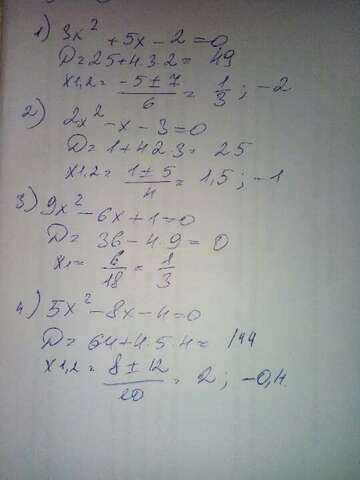 1) 3x² + 5x - 2 = 0
D = 25 + 4·3·2 = 49
x1,2 = (-5 ± 7)/6 = 1/3 ; -2
2) 2x² - x - 3 = 0
D = 1 + 4 2·3 = 25
x1,2 = (1 ± 5)/4 = 1,5 ; -1
3) 9x² - 6x + 1 = 0
D = 36 - 4·9 = 0
x1 = 6/18 = 1/3
4) 5x² - 8x - 4 = 0
D = 64 + 4·5·4 = 144
x1,2 = (8 ± 12)/20 = 2 ; -0,4.